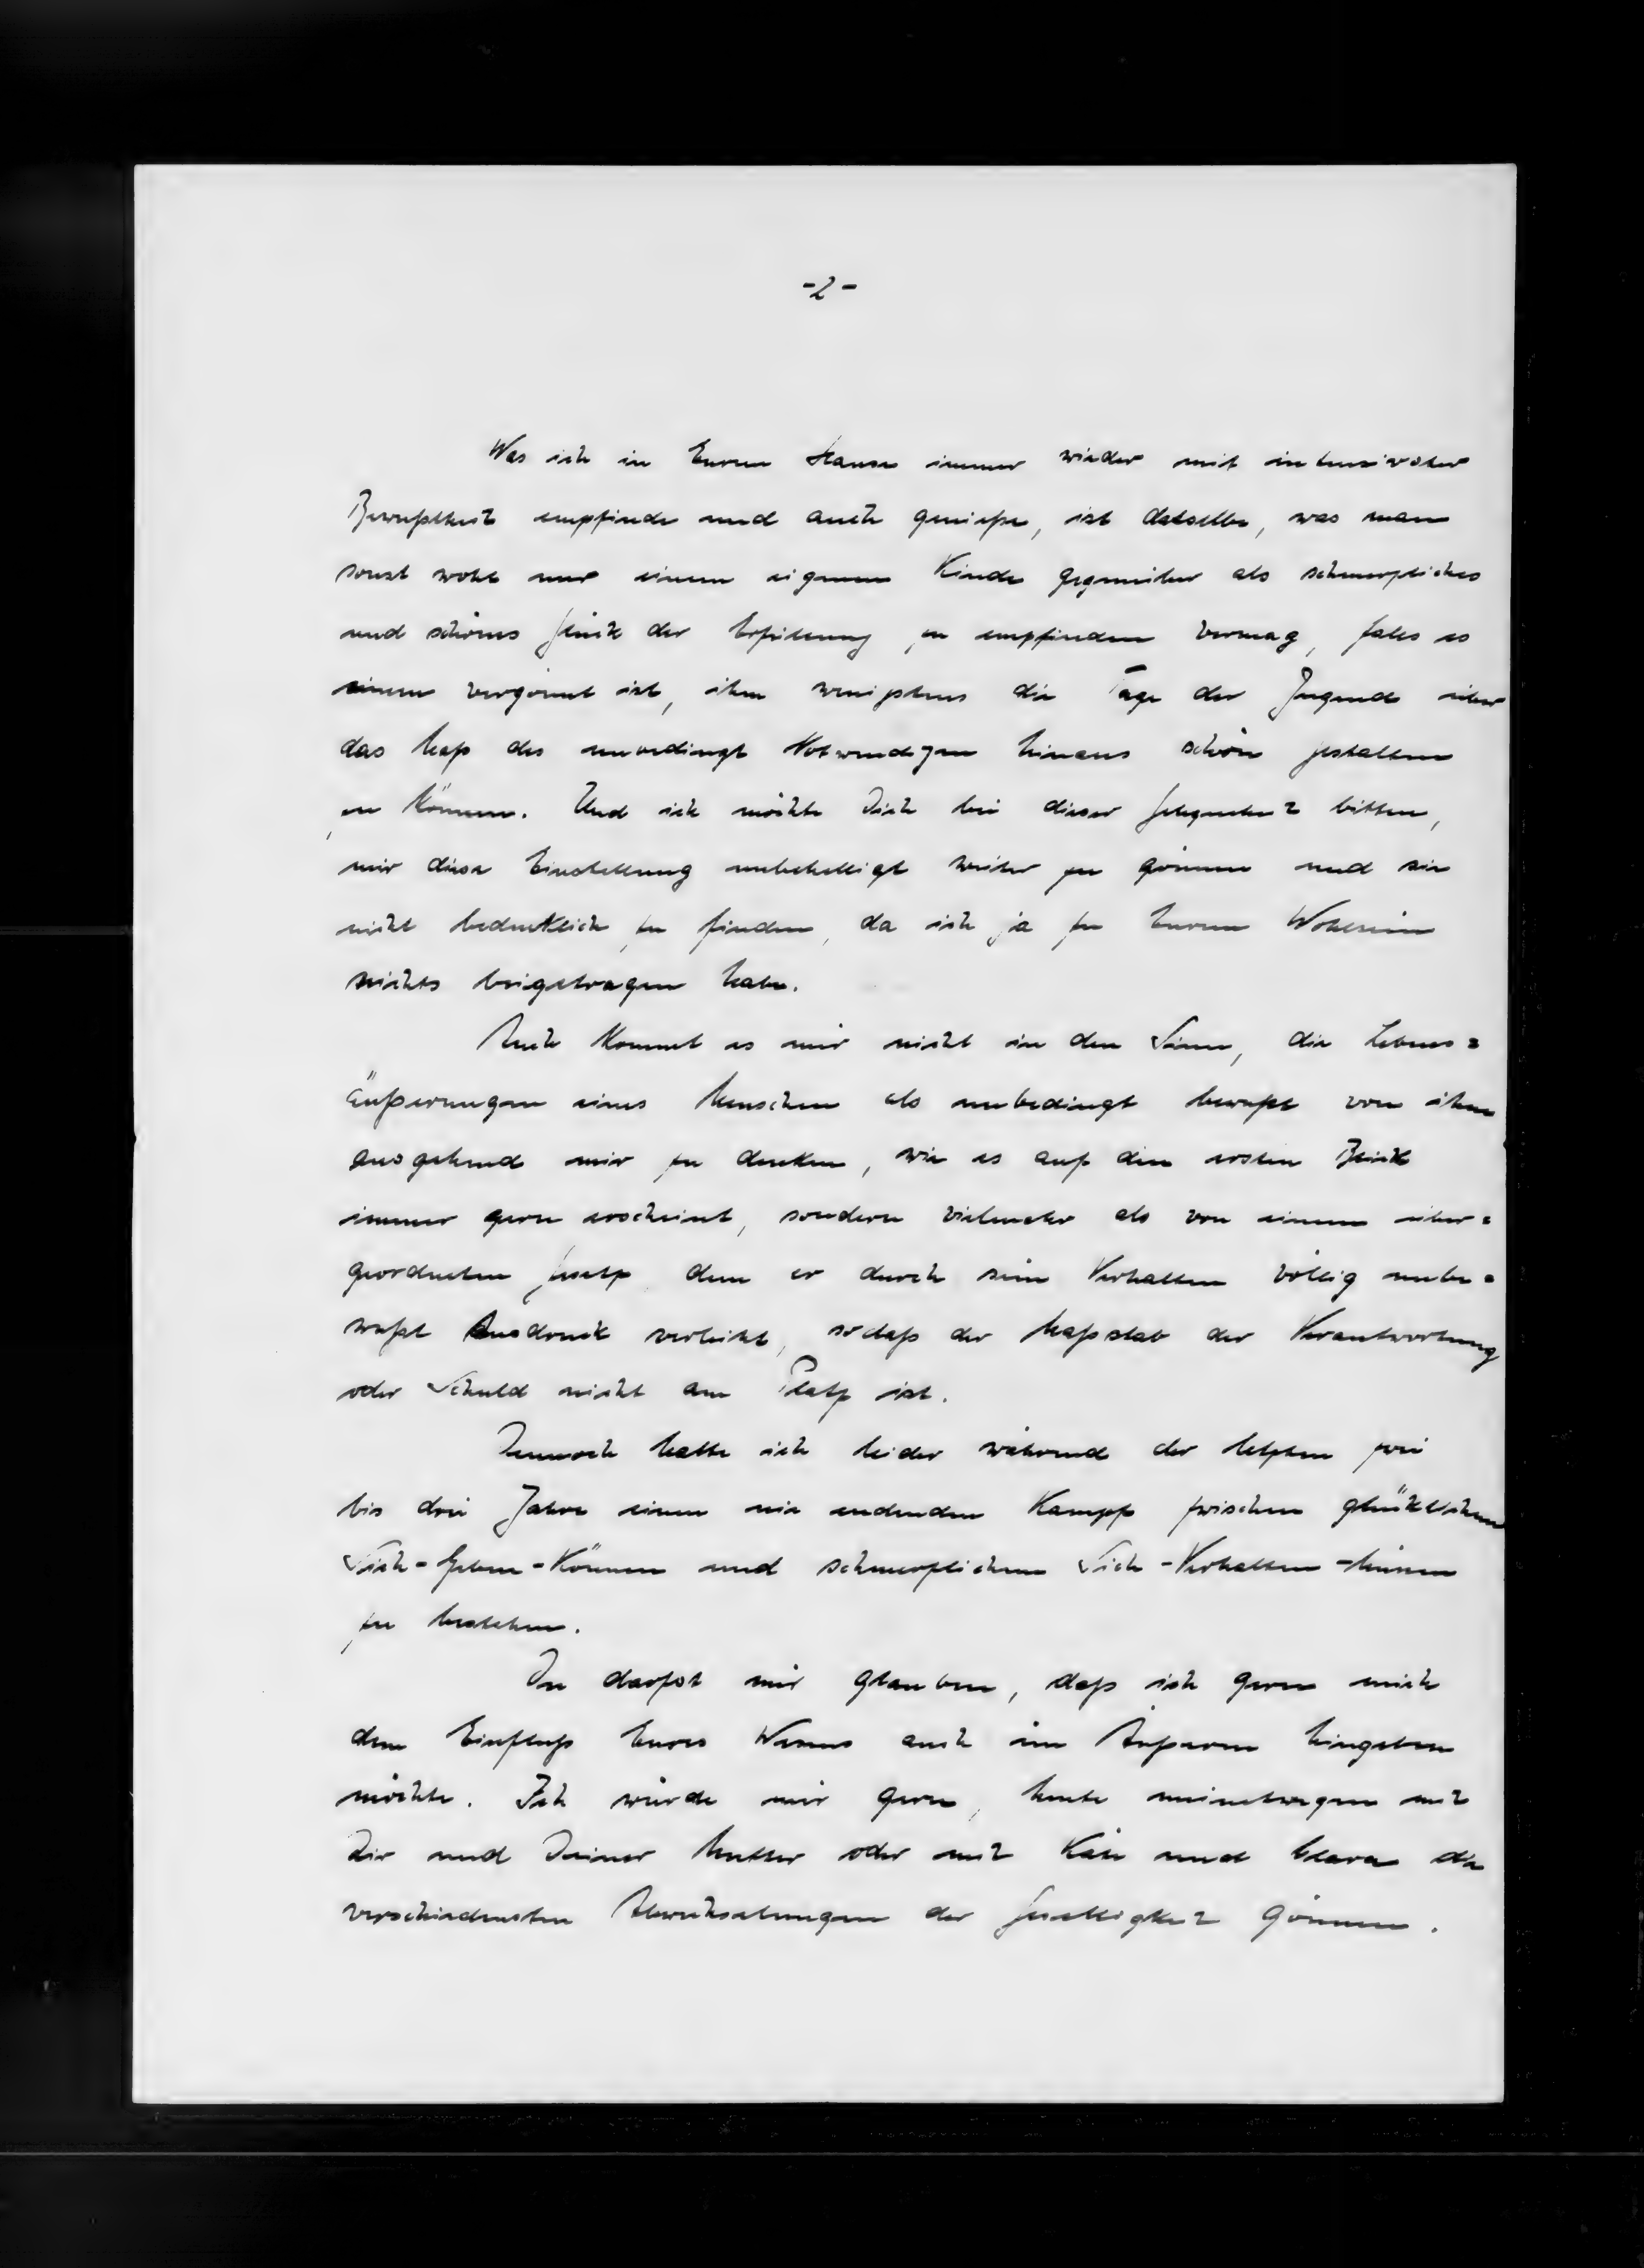 -2-
Was ich in Eurem Hause immer wieder mit intensivster
Bewußtheit empfinde und auch genieße, ist dasselbe, was man
sonst wohl nur einem eigenen Kinde gegenüber als schmerzliches
und schönes Glück der Erfüllung zu empfinden vermag, falls es
einem vergönnt ist, ihm wenigstens die Tage der Jugend über
das Maß des unbedingt Notwendigen hinaus schön gestalten
zu können. Und ich möchte Dich bei dieser Gelegenheit bitten,
mir diese Einstellung unbehelligt weiter zu gönnen und sie
nicht bedenklich zu finden, da ich ja zu Eurem Wohlsein
nichts beigetragen habe.
Auch kommt es mir nicht in den Sinn, die Lebens=
äußerungen eines Menschen als unbedingt bewußt von ihm
ausgehend mir zu denken, wie es auf den ersten Blick
immer gern erscheint, sondern vielmehr als von einem über=
geordneten Gesetz dem er durch sein Verhalten völlig unbe=
wußt Ausdruck verleiht, sodaß der Maßstab der Verantwortung
oder Schuld nicht am Platz ist.
Dennoch hatte ich leider während der letzten zwei
bis drei Jahre einen nie endenden Kampf zwischen glücklichem
Sich-Geben-Können und schmerzlichem Sich-Verhalten-Müssen
zu bestehen.
Du darfst mir glauben, daß ich gern mich
dem Einfluß Eures Wesens auch im Äußeren hingeben
möchte. Ich würde mir gern, heute meinetwegen mit
Dir und Deiner Mutter oder mit Käte und Clara die
verschiedensten Abwechselungen der Geselligkeit gönnen.